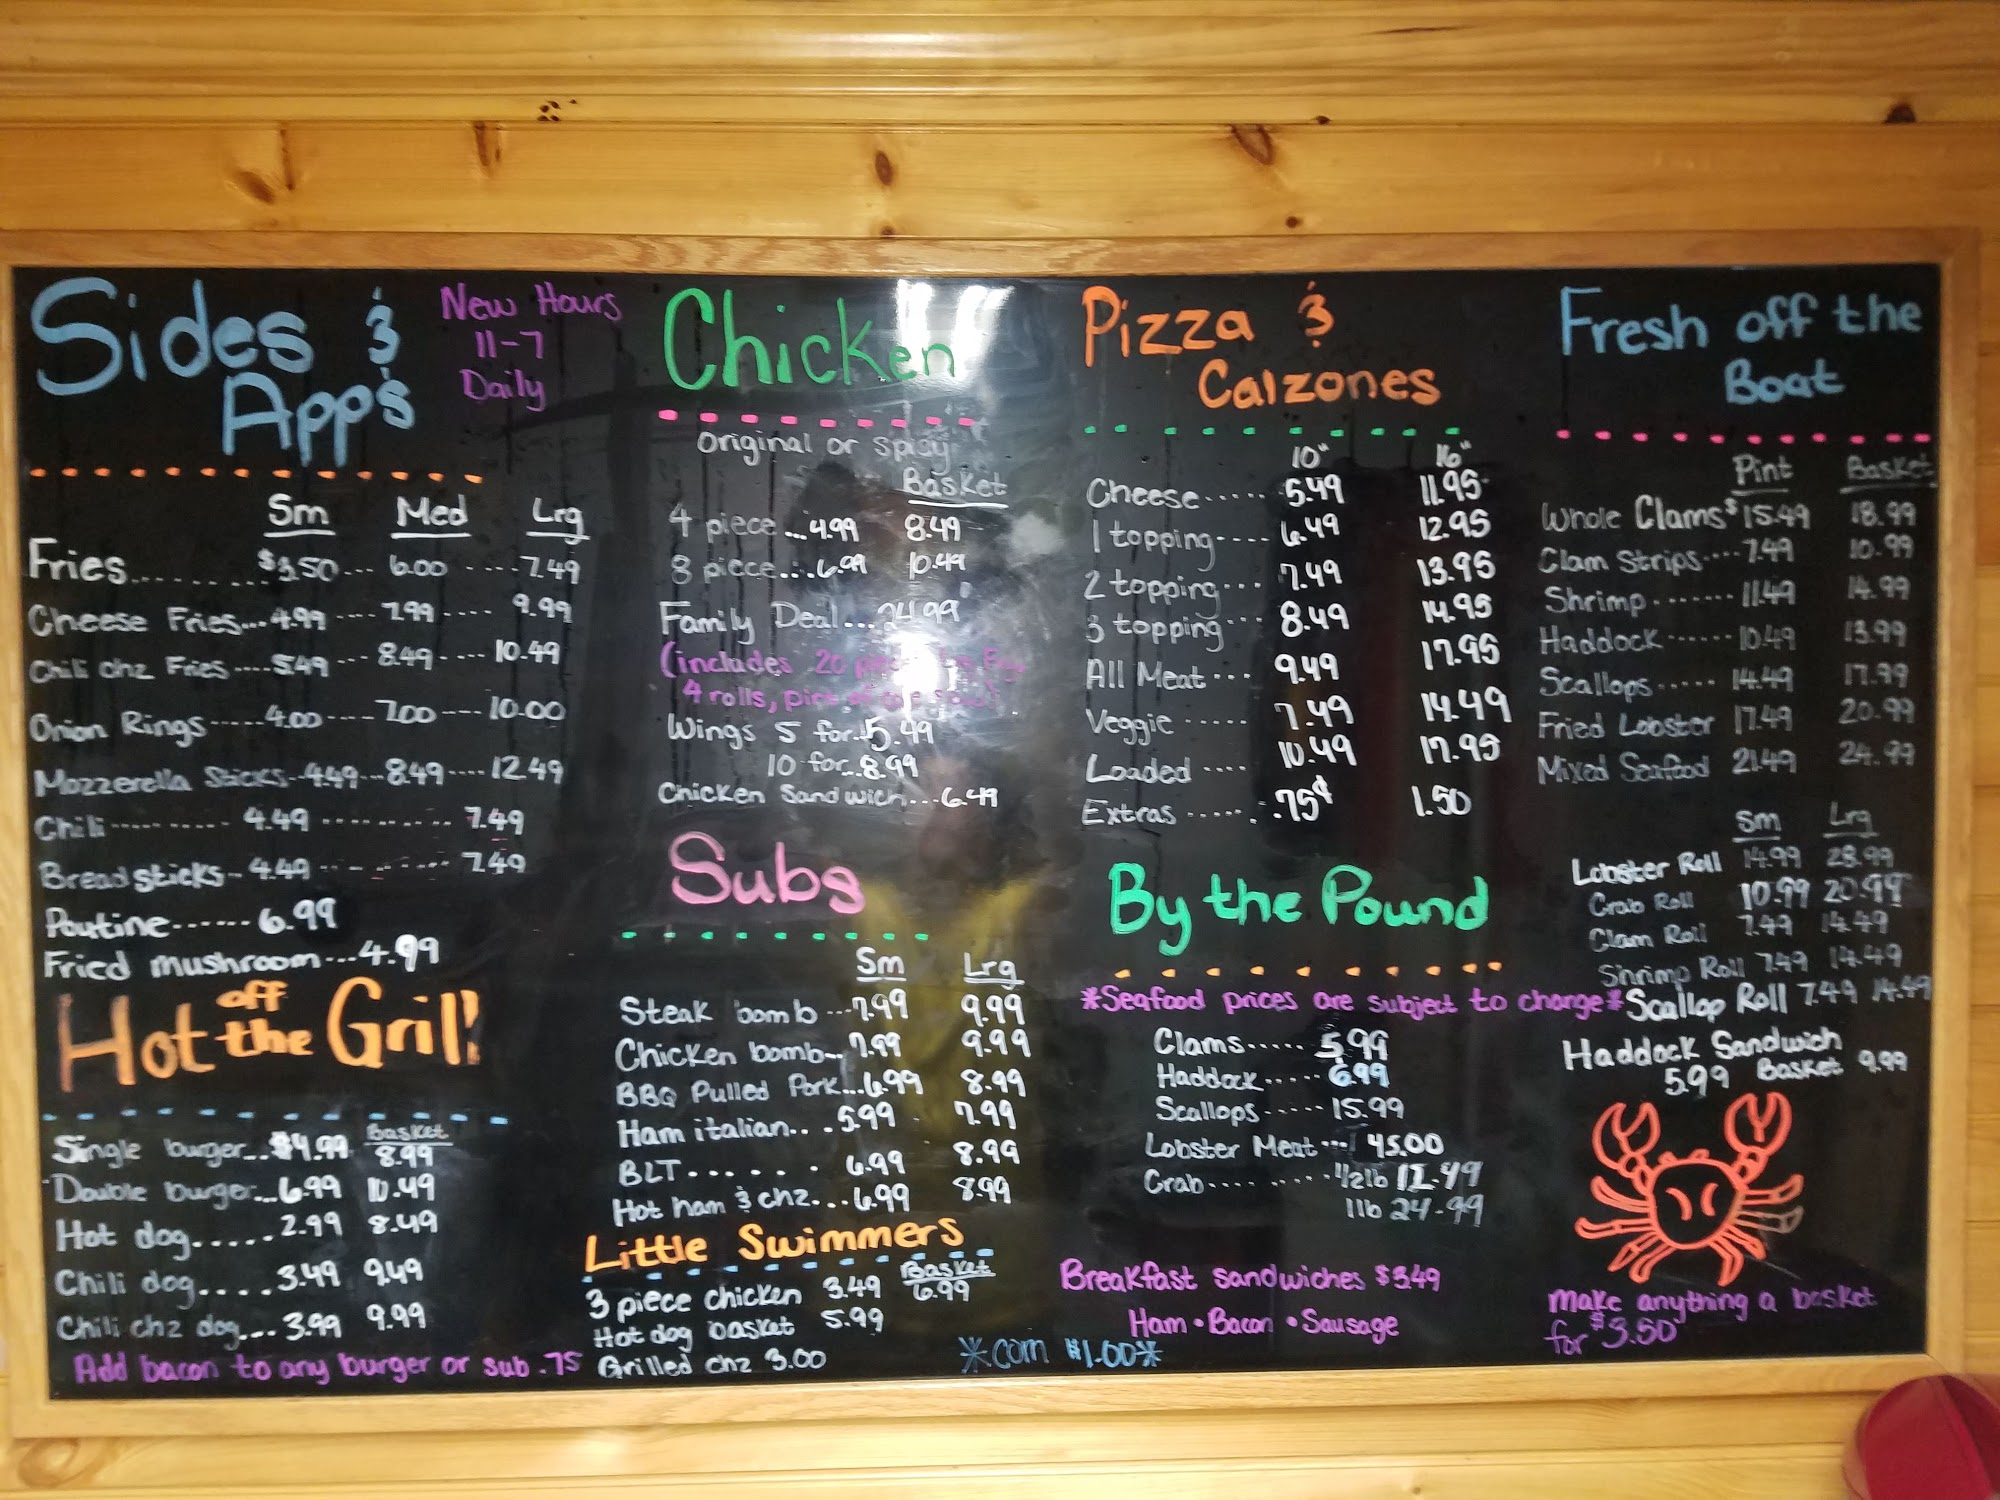 Sides &
Apps
New Hours
11-7
Daily
Sm Med Lrg
Fries........$3.50...6.00....7.49
Cheese Fries...4.99...7.99....9.99
Chili chz Fries....5.49...8.49....10.49
Onion Rings.....4.00....7.00...10.00
Mozzerella Sticks..4.49...8.49....12.49
Chili..........4.49..........7.49
Bread sticks..4.49..........7.49
Poutine......6.99
Fried mushroom...4.99
Hot off the Grill!
Basket
Single burger...$4.99 8.99
Double burger...6.99 10.49
Hot dog.....2.99 8.49
Chili dog....3.49 9.49
Chili chz dog...3.99 9.99
Add bacon to any burger or sub .75
Chicken
Original or spicy
Basket
4 piece...4.99 8.49
8 piece....6.99 10.49
Family Deal...24.99
(includes 20
4 rolls, pint of
Wings 5 for..5.49
10 for...8.99
Chicken Sandwich...6.49
Subs
Sm Lrg
Steak bomb...7.99 9.99
Chicken bomb..7.99 9.99
BBQ Pulled Pork...6.99 8.99
Ham italian...5.99 7.99
BLT...... 6.99 8.99
Hot ham & chz...6.99 8.99
Little Swimmers
Basket
3 piece chicken 3.49 6.99
Hot dog basket 5.99
Grilled chz 3.00
*corn $1.00*
Pizza &
Calzones
10" 16"
Cheese..... 5.49 11.95
1 topping.... 6.49 12.95
2 topping... 7.49 13.95
3 topping... 8.49 14.95
All Meat... 9.49 17.95
Veggie ..... 7.49 14.49
Loaded .... 10.49 17.95
Extras ...... .75¢ 1.50
By the Pound
*Seafood prices are subject to change*
Clams..... 5.99
Haddock..... 6.99
Scallops..... 15.99
Lobster Meat... 45.00
Crab.......... 1/2lb 12.49
1lb 24.99
Breakfast sandwiches $3.49
Ham • Bacon • Sausage
Fresh off the
Boat
Pint Basket
Whole Clams $15.49 18.99
Clam Strips....7.49 10.99
Shrimp.......11.49 14.99
Haddock......10.49 13.99
Scallops.....14.49 17.99
Fried Lobster 17.49 20.99
Mixed Seafood 21.49 24.99
Sm Lrg
Lobster Roll 14.99 28.99
Crab Roll 10.99 20.99
Clam Roll 7.49 14.49
Shrimp Roll 7.49 14.49
Scallop Roll 7.49 14.49
Haddock Sandwich
5.99 Basket 9.99
Make anything a basket
for $3.50